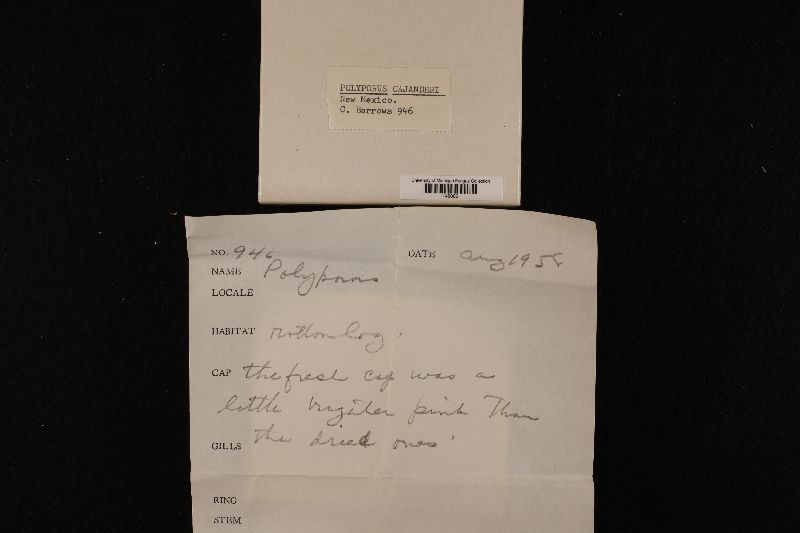 POLYPORUS CAJANDERI
New Mexico.
C. Barrows 946
University of Michigan Fungus Collection
NO. 946 DATE Aug 1958
NAME Polyporus
LOCALE
HABITAT rotten log.
CAP the fresh cap was a
little brighter pink than
GILLS the dried ones.
RING
STEM